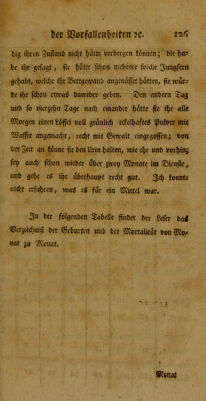 der Vorfallenheiten ꝛc. 126
dig ihren Zustand nicht hätte verbergen können; die ha-
be ihr gesagt, sie hätte schon mehrere solche Jungfern
gehabt, welche ihr Bettgewand angenässet hätten, sie wür-
de ihr schon etwas dawider geben. Den andern Tag
und so vierzehn Tage nach einander hätte sie ihr alle
Morgen einen Löffel voll gräulich eckelhaftes Pulver mit
Wasser angemacht, recht mit Gewalt eingegossen; von
der Zeit an könne sie den Urin halten, wie ehe und vorhin;
sey auch schon wieder über zwey Monate im Dienste,
und gehe es ihr überhaupt recht gut. Ich konnte
nicht erfahren, was es für ein Mittel war.
In der folgenden Tabelle findet der Leser das
Verzeichniß der Geburten und der Mortalität von Mo-
nat zu Monat.
Monat